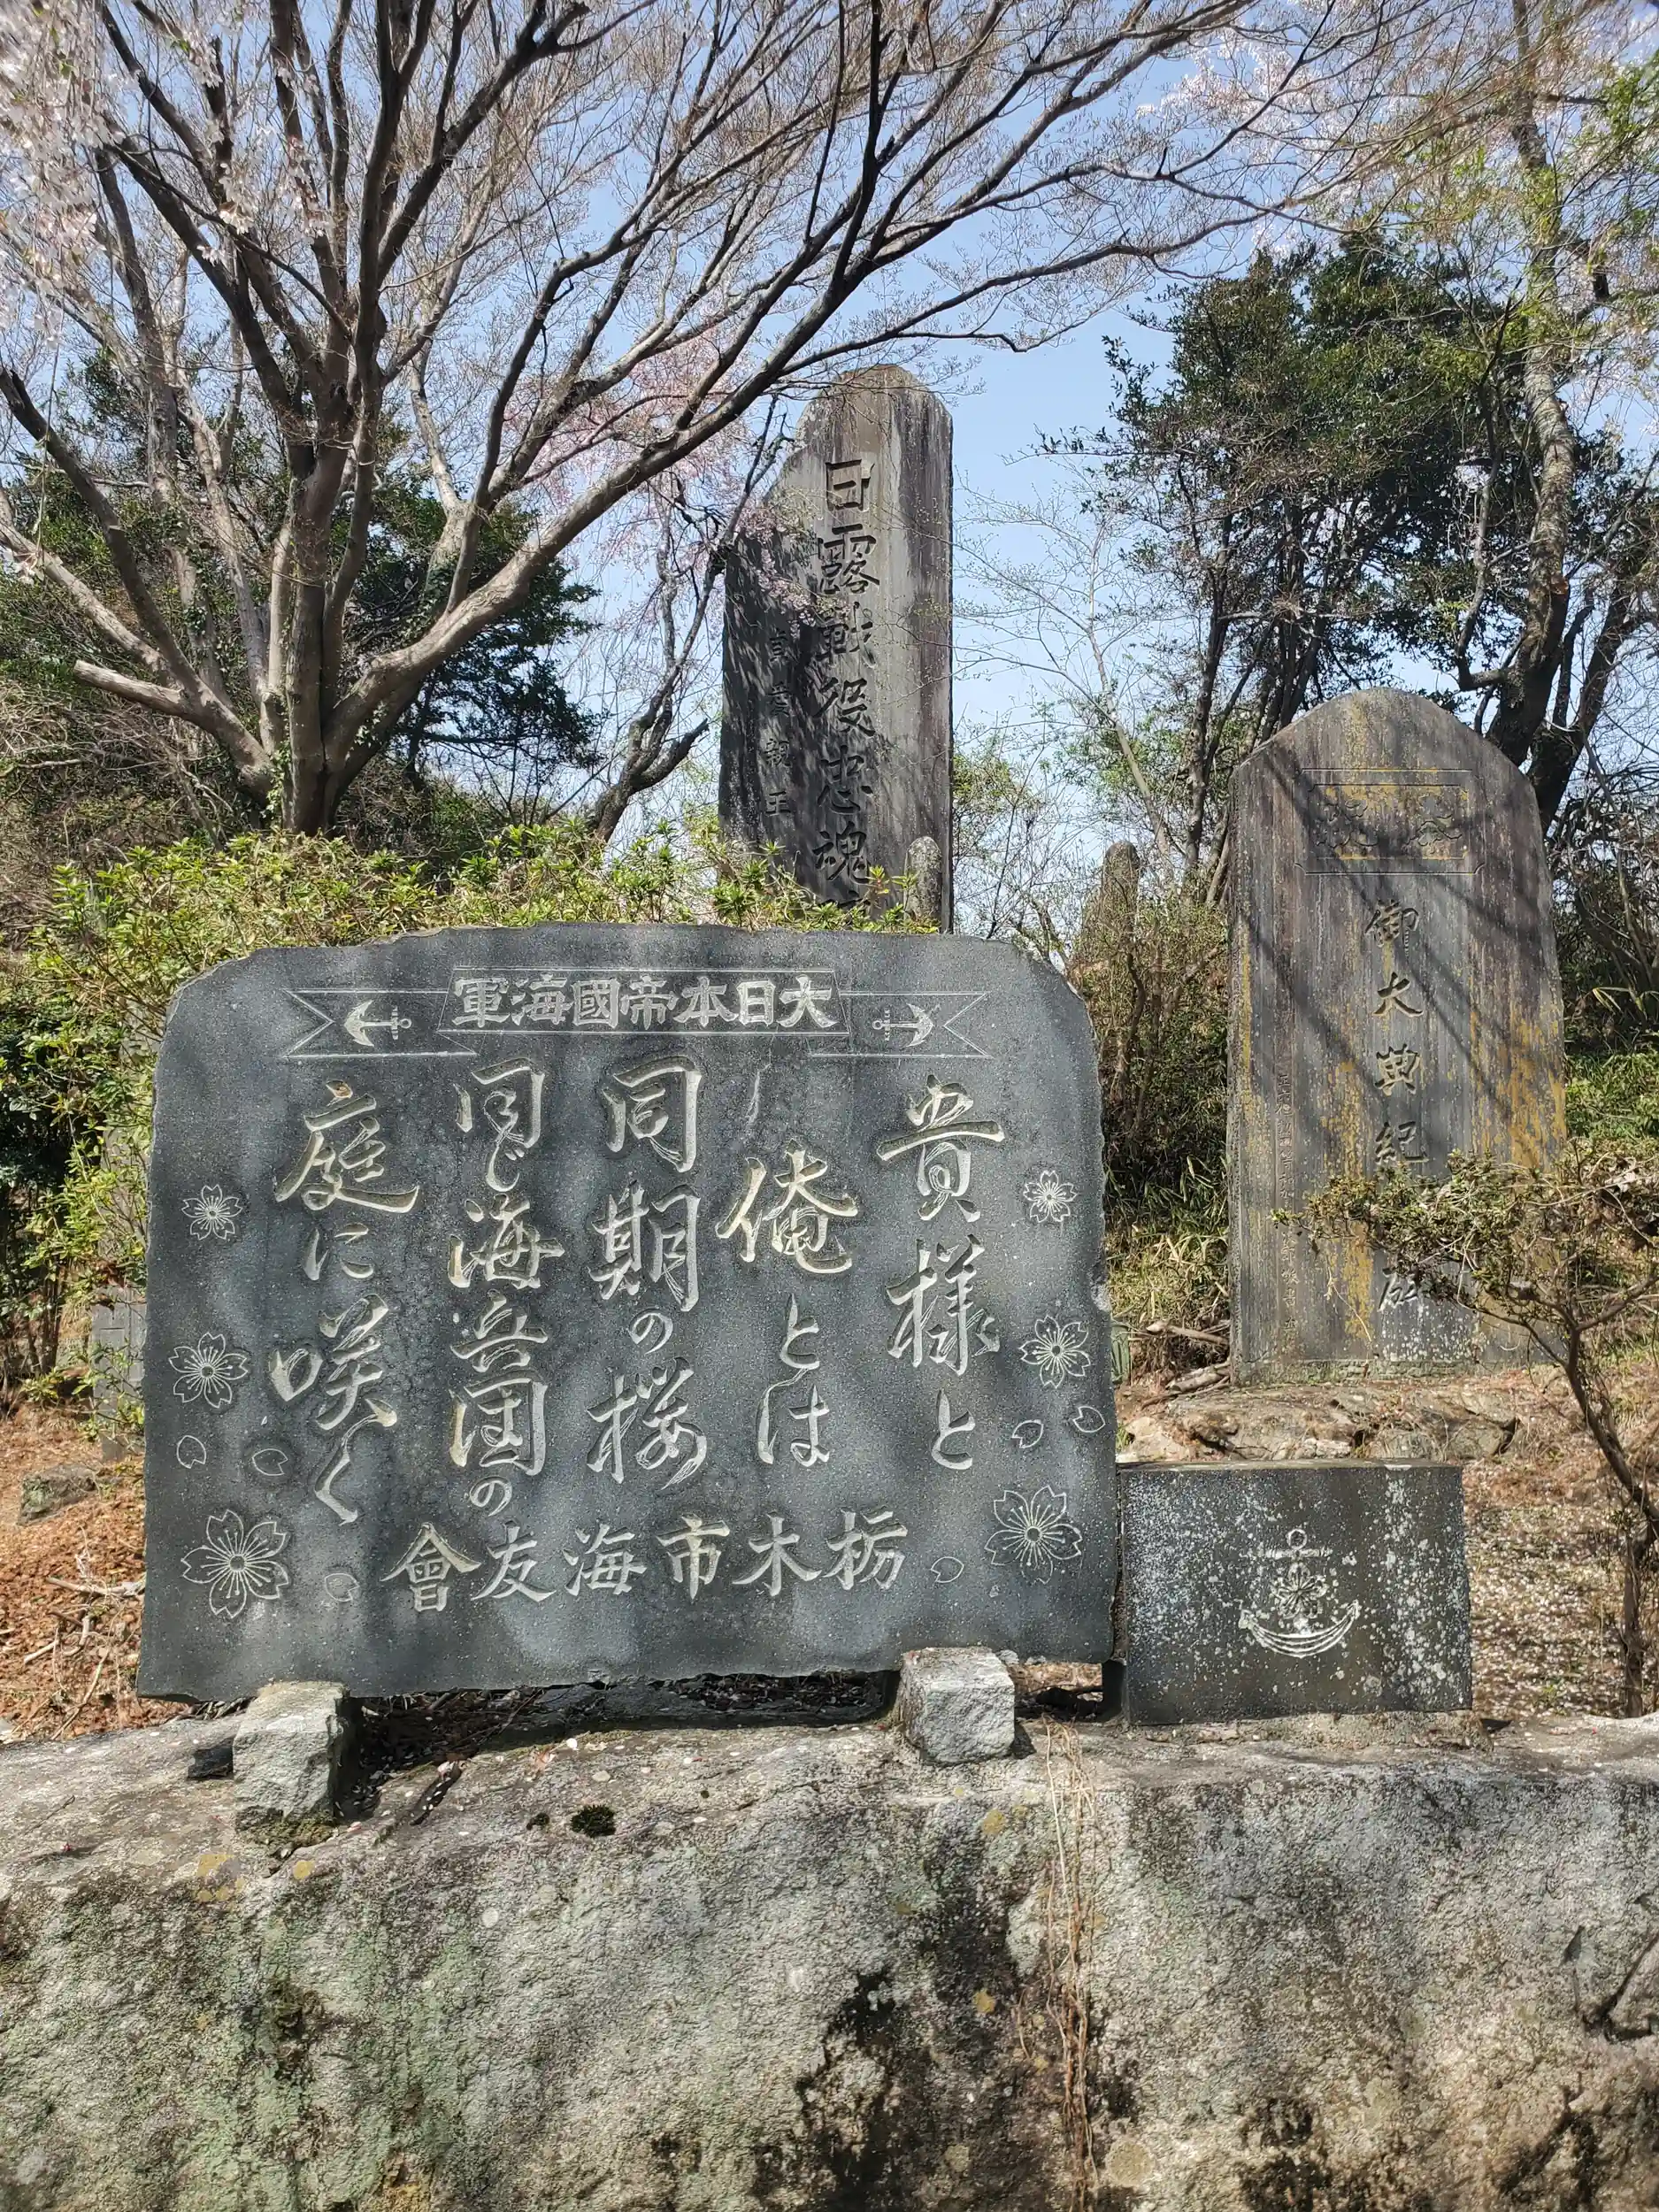 大日本帝國海軍
貴様と
俺とは
同期の桜
同じ海兵団の
庭に咲く
栃木市海友會
日露戦役忠魂
親王
御大典紀